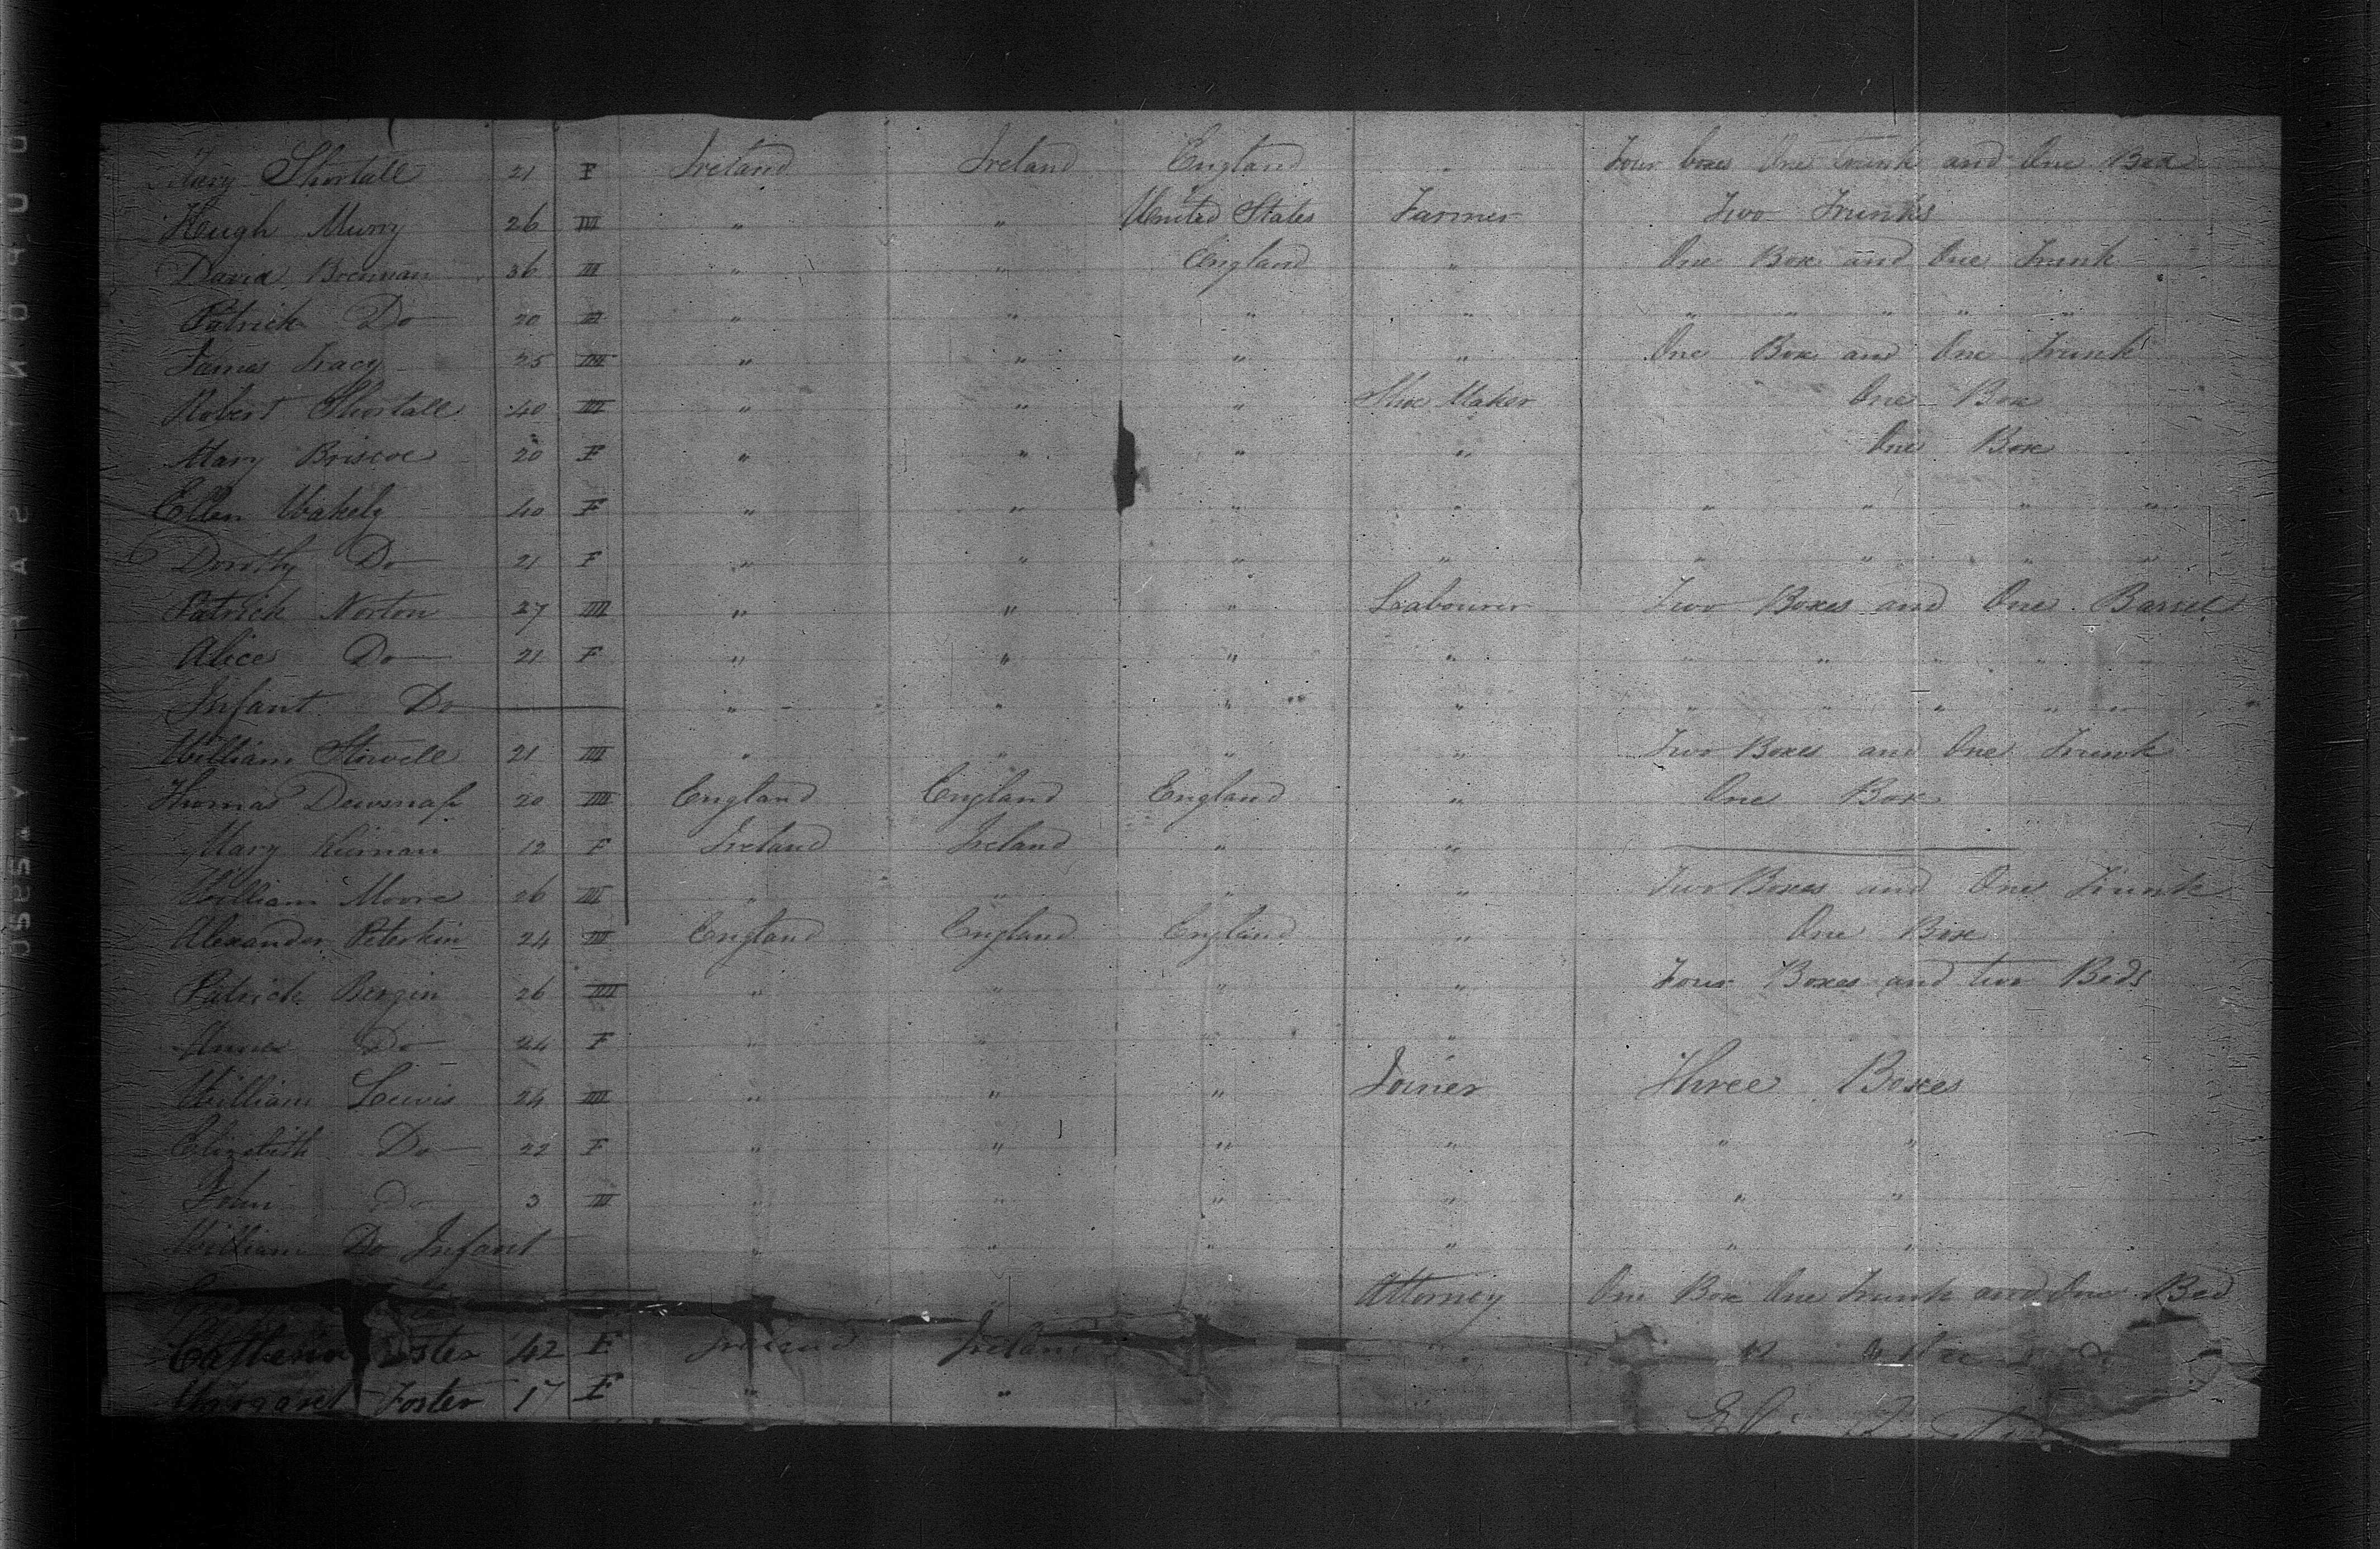 Mary Shortall 21 F Ireland Ireland England " Four boxes One Trunk and One Bed
Hugh Murry 26 M " " United States Farmer Two Trunks
David Brennan 36 M " " England " One Box and One Trunk
Patrick Do 20 M " " " " " " " " "
James Tracy 25 M " " " " One Box and One Trunk
Robert Shortall 40 M " " " Shoe Maker One Box
Mary Briscoe 20 F " " " " One Box
Ellen Wakely 40 F " " " " " " " "
Dorothy Do 21 F " " " " " " " "
Patrick Norton 27 M " " " Labourer Two Boxes and One Barrel
Alice Do 21 F " " " " " " " " "
Infant Do " " " " " " " " "
William Stowell 21 M " " " " Two Boxes and One Trunk
Thomas Dewsnap 20 M England England England " One Box
Mary Kiernan 12 F Ireland Ireland " "
William Moore 26 M " " " " Two Boxes and One Trunk
Alexander Peterkin 24 M England England England " One Box
Patrick Bergin 26 M " " " " Four Boxes and two Beds
Do 24 F " " " "
William Lewis 24 M " " " Joiner Three Boxes
Elizabeth Do 22 F " " " " " "
John Do 3 M " " " " " "
William Do Infant " " " " " "
" " Attorney One Box One Trunk and One Bed
Catherine Foster 42 F Ireland Ireland "
Margaret Foster 17 F " "